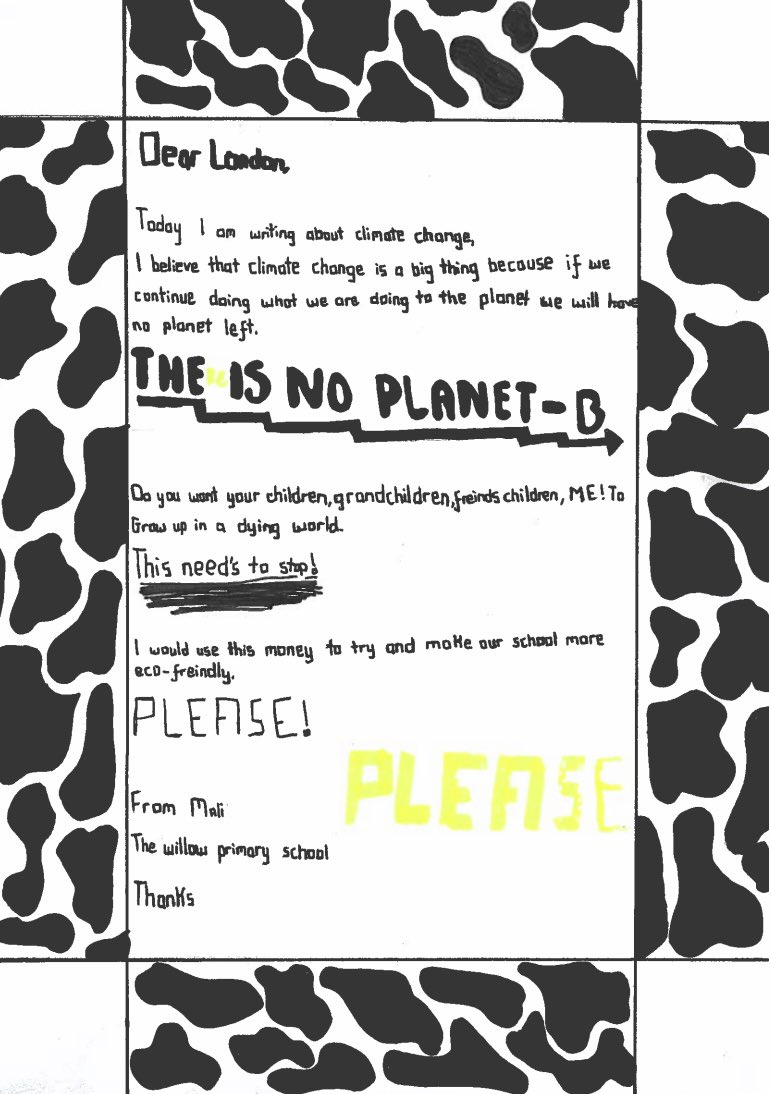 Dear London,
Today I am writing about climate change,
I believe that climate change is a big thing because if we
continue doing what we are doing to the planet we will have
no planet left.
THE IS NO PLANET-B
Do you want your children, grandchildren, freinds children, ME! To
Grow up in a dying world.
This need's to stop!
I would use this money to try and make our school more
eco-freindly.
PLEASE!
PLEASE
From Mali
The willow primary school
Thanks